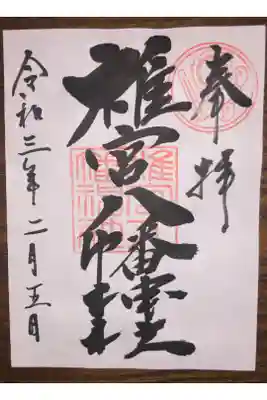 奉拝
椎宮八幡神社
令和三年二月五日